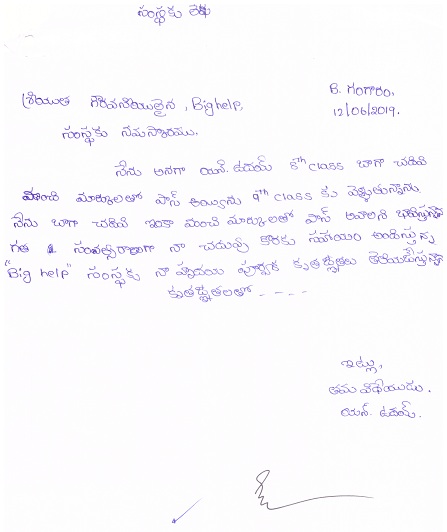 సంస్థకు లేఖ
B. గంగారం,
శ్రీయుత గౌరవనీయులైన, Big help,
12/06/2019.
సంస్థకు నమస్కారము.
నేను అనగా యన్. ఉదయ్ 8th class బాగా చదివి
మంచి మార్కులతో పాస్ అయ్యిను 9th class కు వెళ్ళుతున్నాను
నేను బాగా చదివి ఇంకా మంచి మార్కులతో పాస్ అవాలని
గత సంవత్సరాలుగా నా చదువు కొరకు సహాయం అందిస్తున్న
"Big help" సంస్థకు నా హృదయ పూర్వక కృతజ్ఞతలు తెలియచేస్తున్నాను
కృతజ్ఞతలతో - - - -
ఇట్లు,
తమ విధేయుడు.
యన్. ఉదయ్.